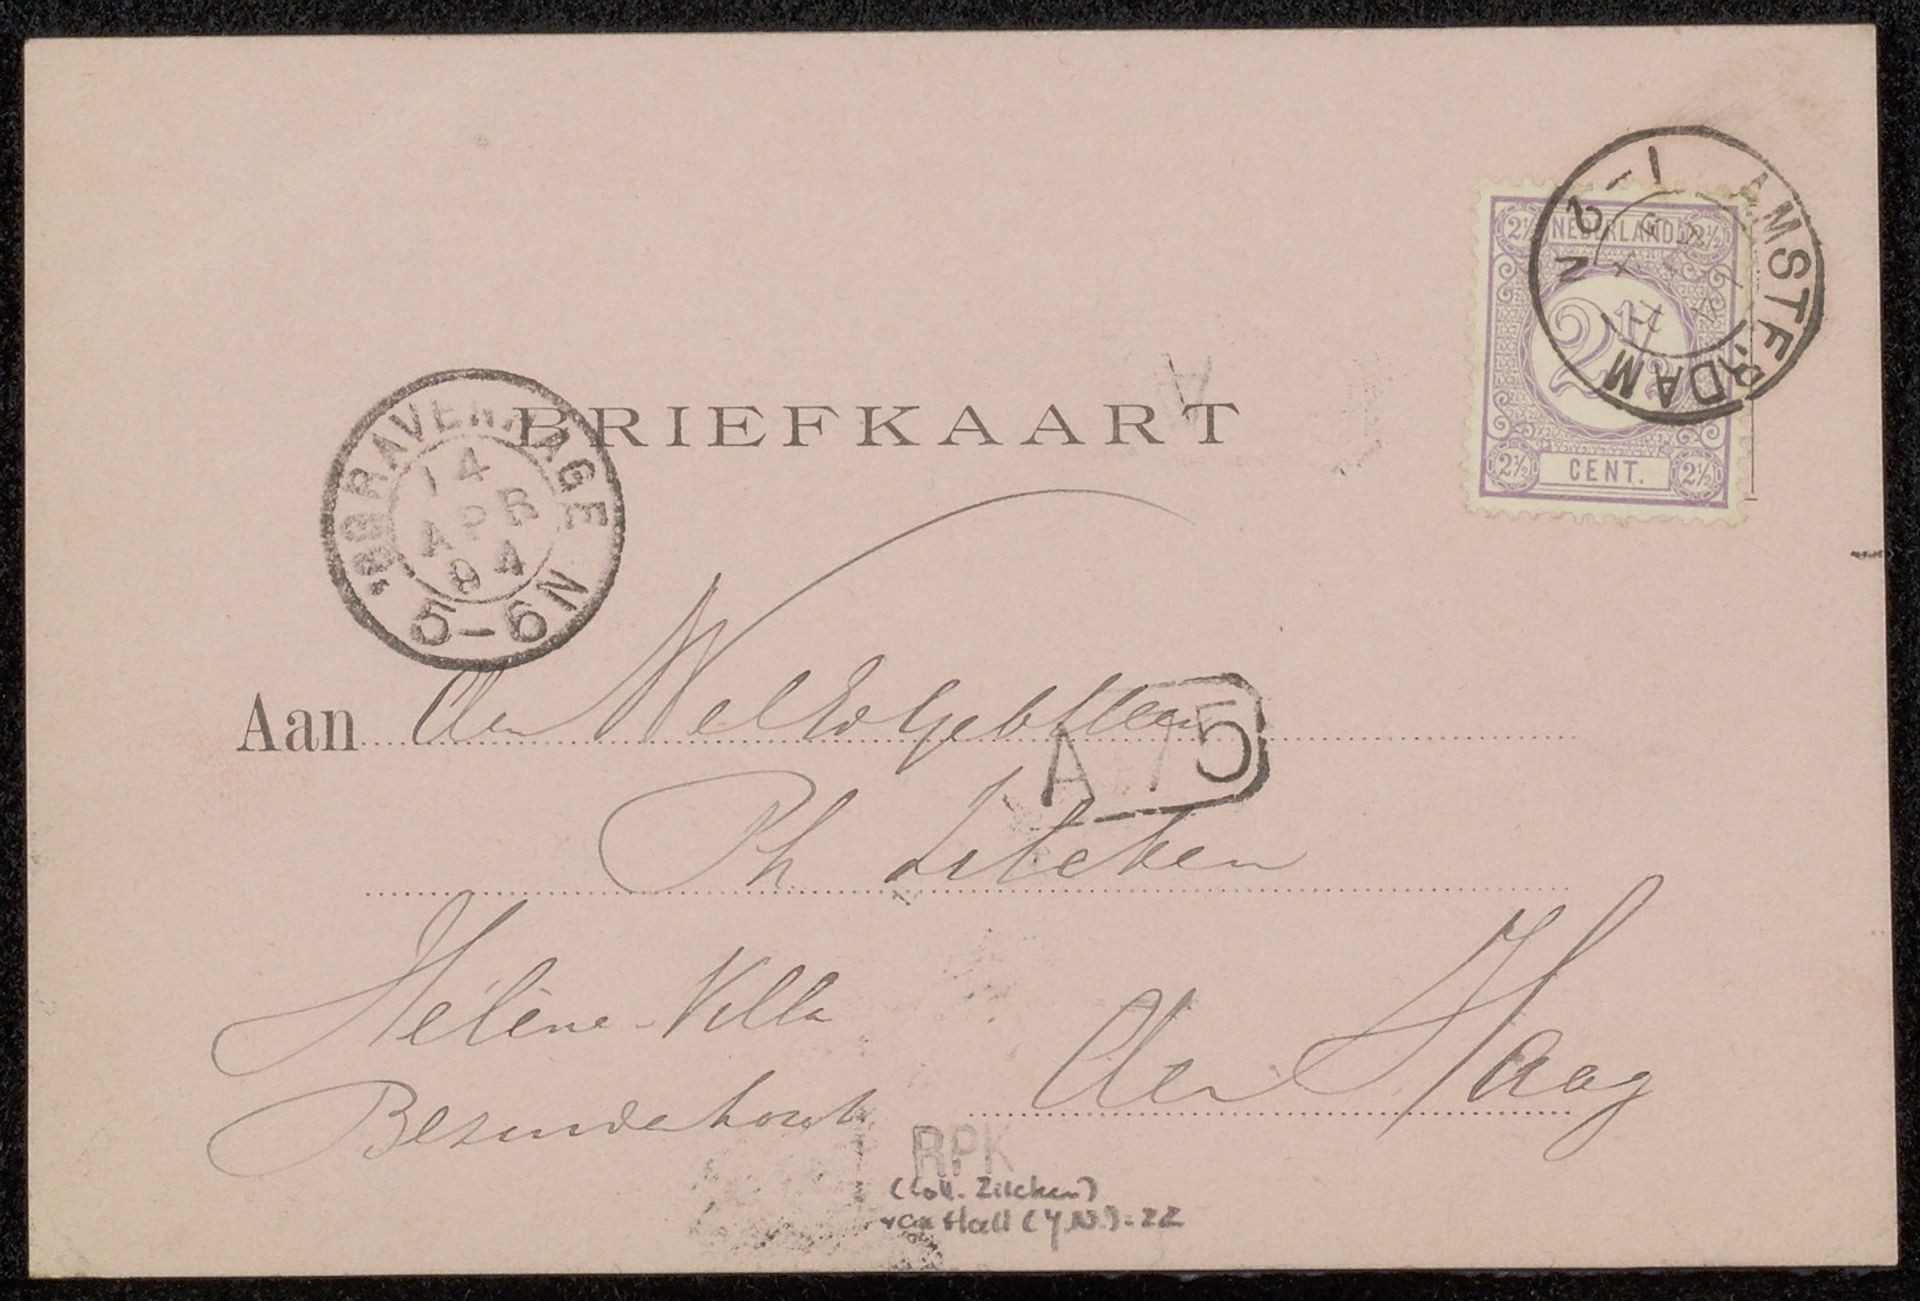 AMSTERDAM
1-2 N
NEDERLAND
2½ 2½
2½
2½ CENT. 2½
'S GRAVENHAGE
14
APR
94
5-6N
BRIEFKAART
Aan den WelEdGeb Heer
A 75
Ph Zilcken
Hélène-Villa
den Haag
Bezuidenhout
RPK
(coll. Zilcken)
van Hall (